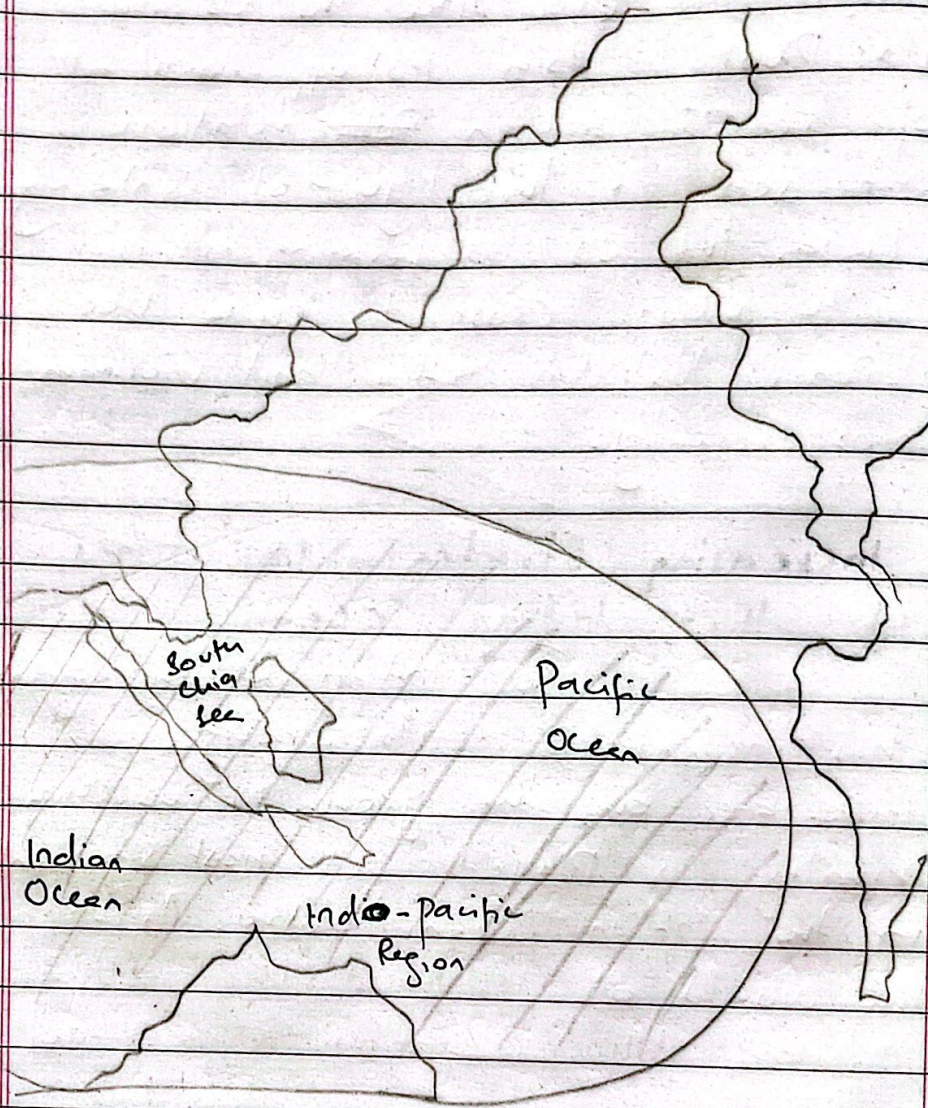 South
Chia
See
Pacific
Ocean
Indian
Ocean
Indo-pacific
Region